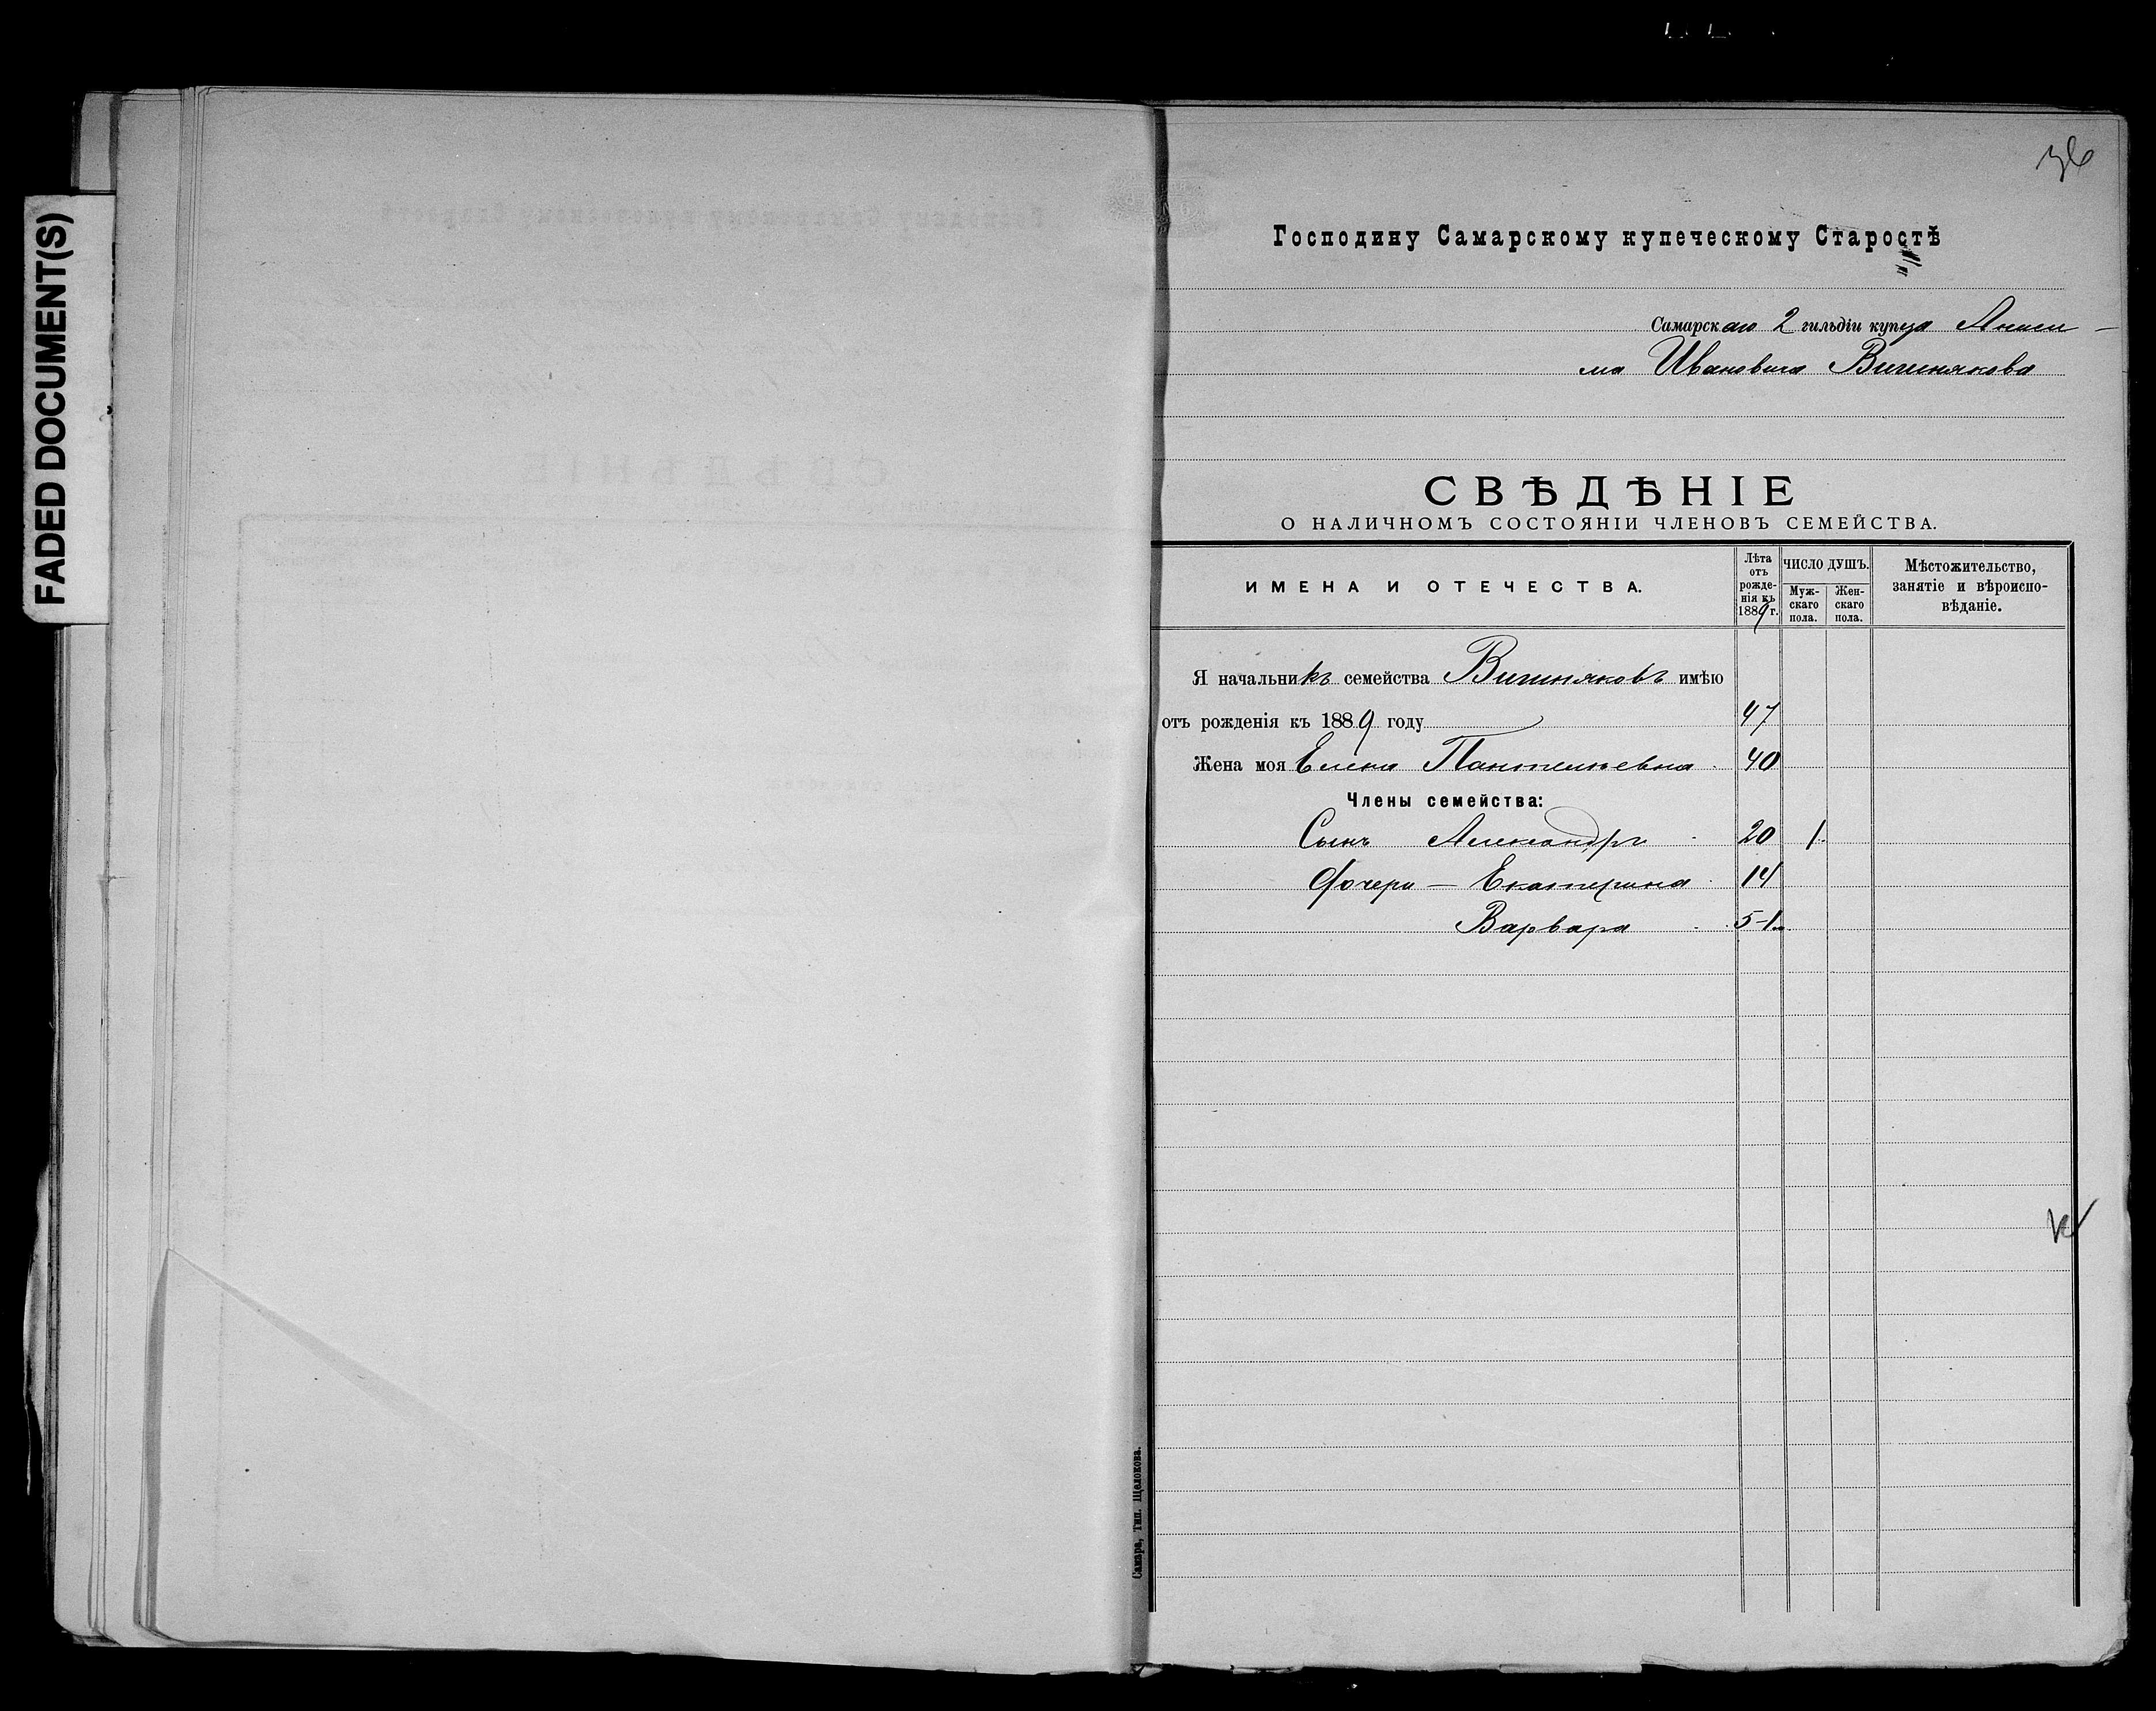 FADED DOCUMENT(S)
36
Господину Самарскому купеческому Старостѣ
Самарскаго 2 гильдіи купца Аниси-
ма Ивановича Вишнякова
СВѢДѢНІЕ
О НАЛИЧНОМЪ СОСТОЯНІИ ЧЛЕНОВЪ СЕМЕЙСТВА.
ИМЕНА И ОТЕЧЕСТВА.
Лѣта
отъ
рожде-
нія къ
1889 г.
ЧИСЛО ДУШЪ.
Муж-
скаго
пола.
Жен-
скаго
пола.
Мѣстожительство,
занятіе и вѣроиспо-
вѣданіе.
Я начальникъ семейства Вишняковъ имѣю
отъ рожденія къ 1889 году 47
Жена моя Елена Пантелѣевна 40
Члены семейства:
Сынъ Александръ 20 1
Дочери — Екатерина 14
Варвара 5-1
Самара, Тип. Щелокова.